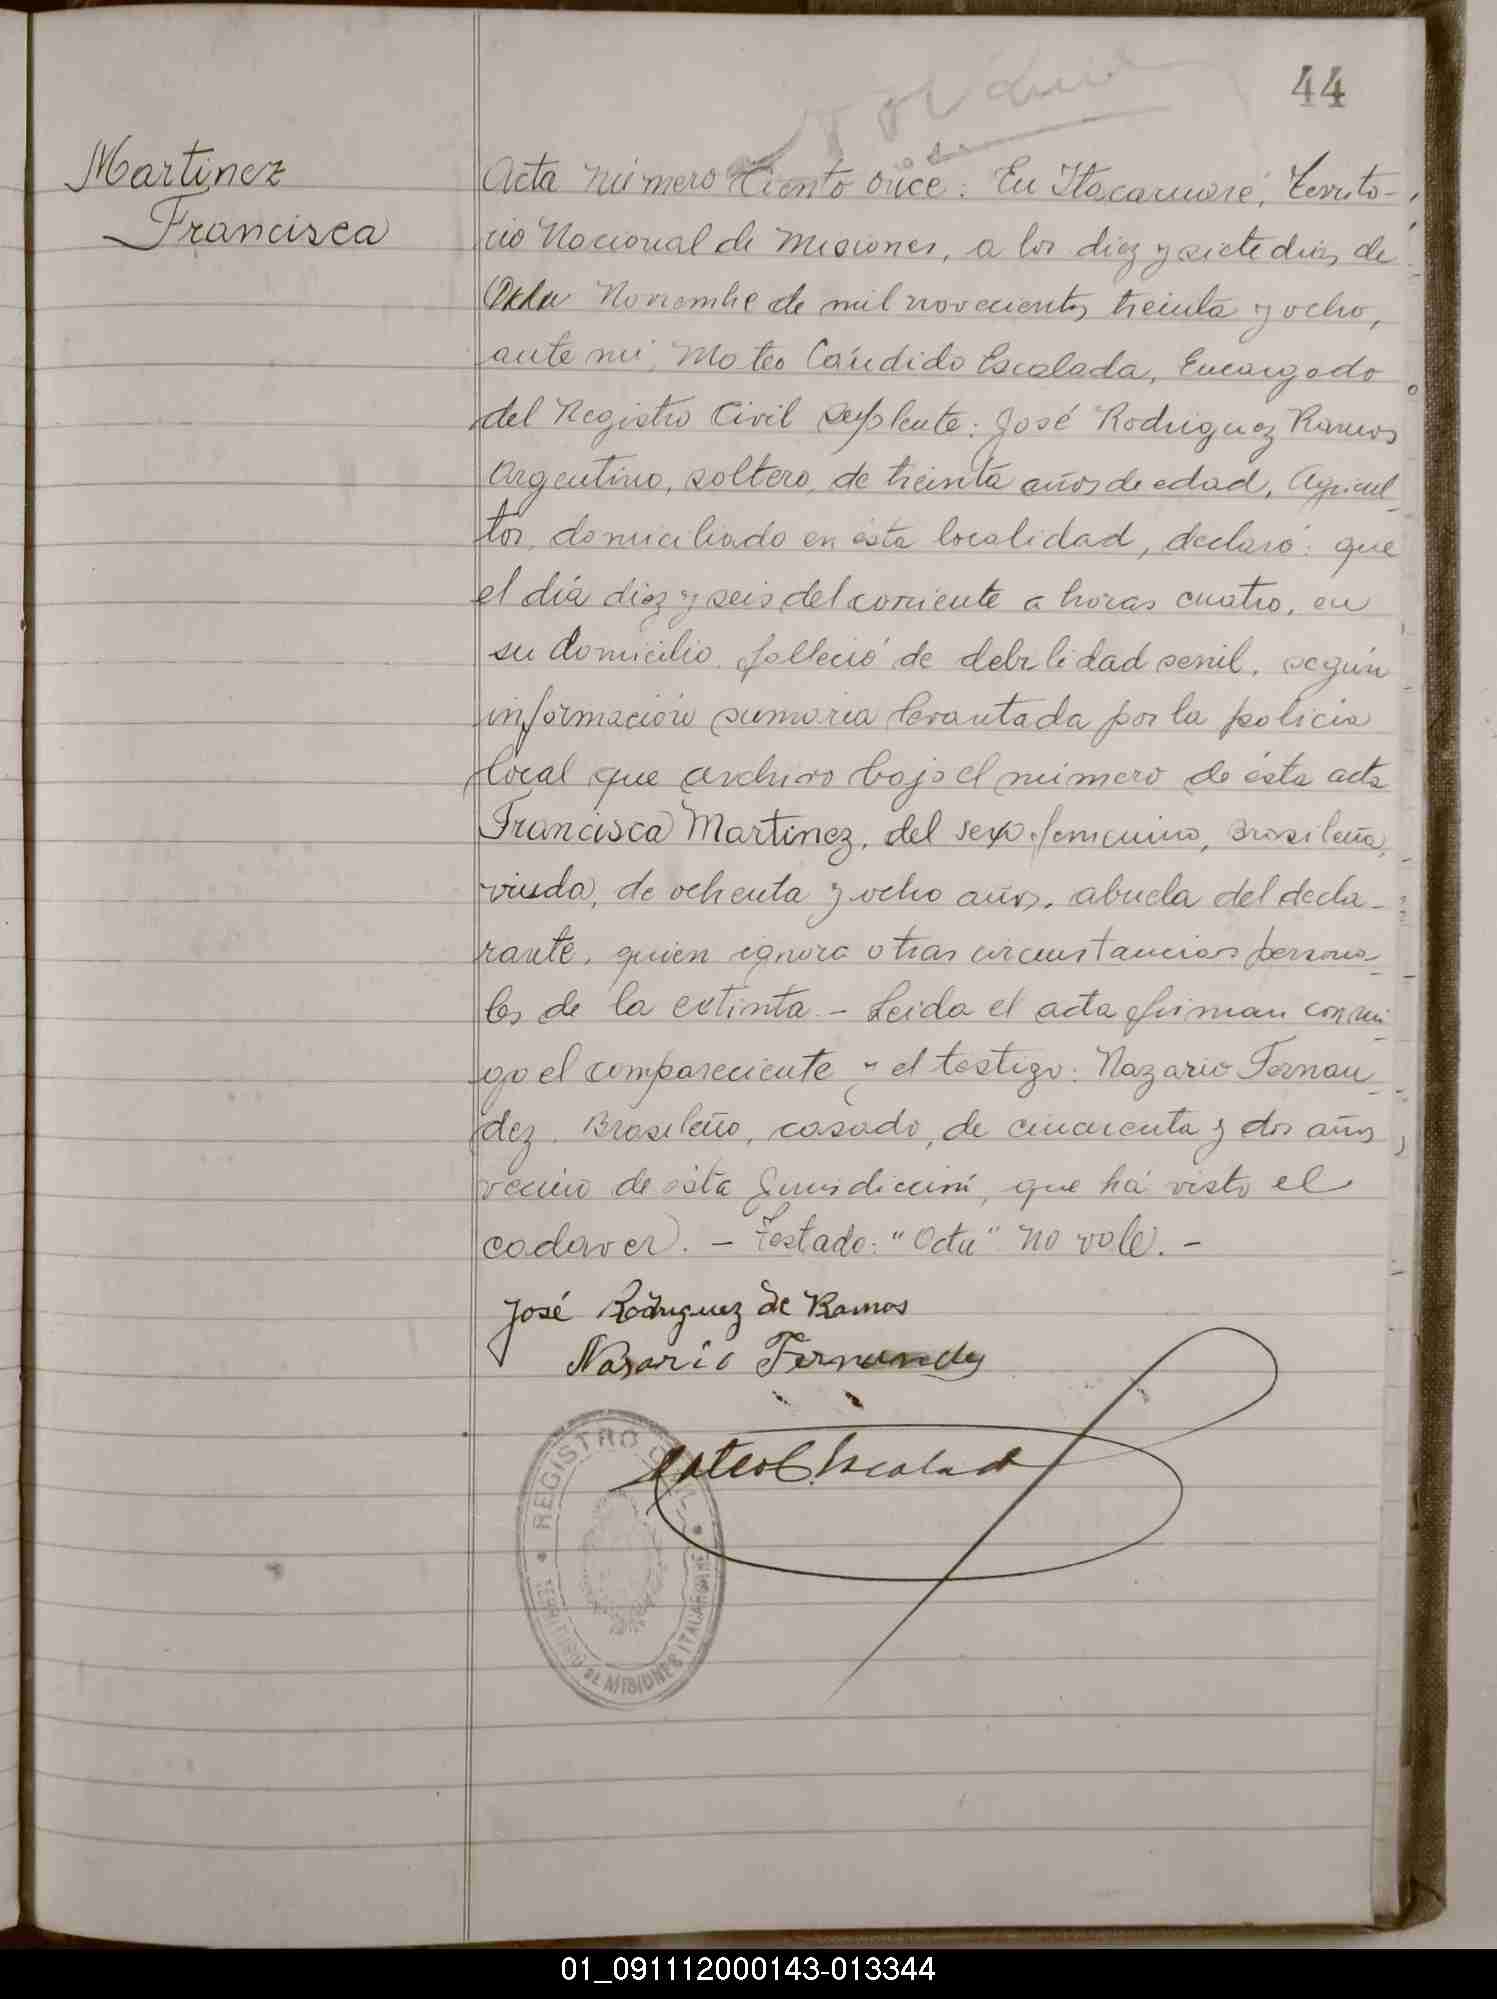 44
Martinez
Francisca
Acta Número Ciento once: En Itacaruaré, Territo-
rio Nacional de Misiones, a los diez y siete dias de
Octu Noviembre de mil novecientos treinta y ocho,
ante mi, Mateo Cándido Escalada, Encargado
del Registro Civil Suplente: José Rodriguez Ramos
Argentino, soltero, de treinta años de edad, Agricul-
tor, domiciliado en ésta localidad, declaró: que
el día diez y seis del corriente a horas cuatro, en
su domicilio falleció de debilidad senil, según
información sumaria levantada por la policia
local que archivo bajo el número de ésta acta
Francisca Martinez, del sexo femenino, Brasileña,
viuda, de ochenta y ocho años, abuela del decla-
rante, quien ignora otras circunstancias persona-
les de la extinta. - Leida el acta firman conmi-
go el compareciente y el testigo: Nazario Fernan-
dez, Brasileño, casado, de cincuenta y dos años
vecino de ésta jurisdicción, que há visto el
cadaver. - Testado: "Octu" No vale. -
José Rodriguez de Ramos
Nasario Fernandez
Mateo C. Escalada
REGISTRO CIVIL
TERRITORIO DE MISIONES ITACARUARE
01_091112000143-013344